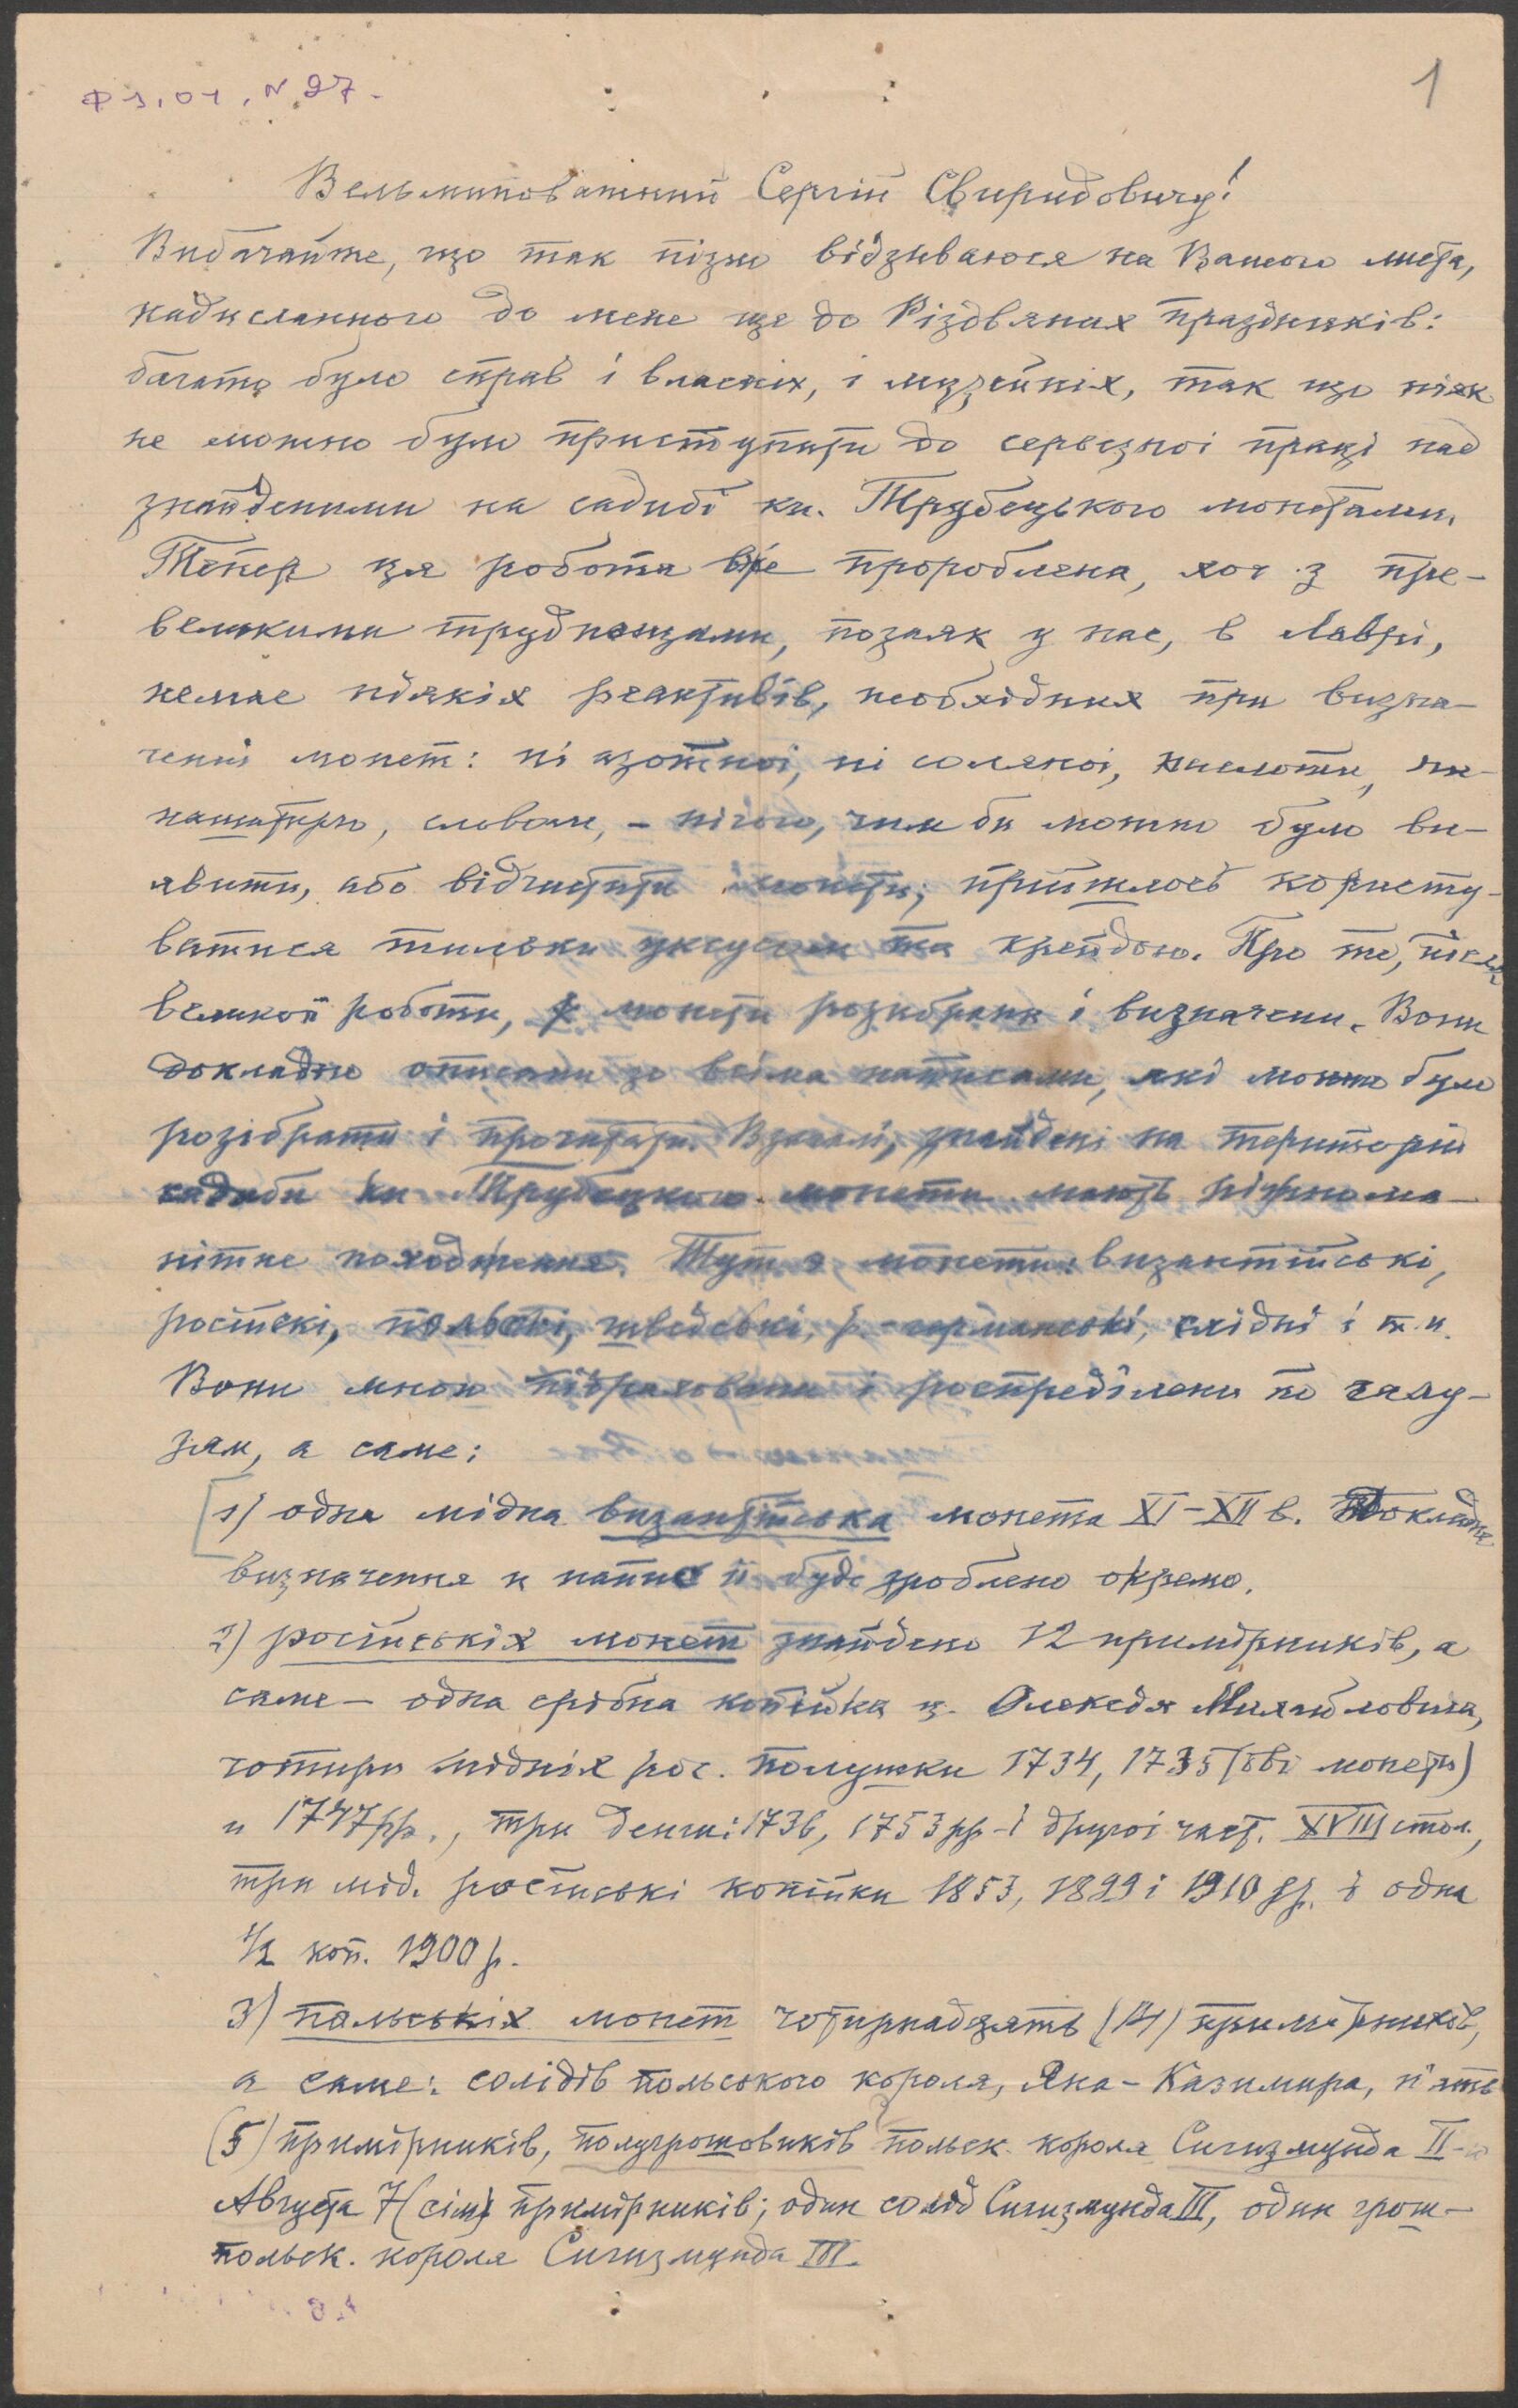 Ф 1, 01, N 27.
1
Вельмиповажний Сергій Свиридовичу!
Вибачайте, що так пізно відзиваюся на Вашого листа,
надисланного до мене ще до Різдвяних праздників:
багато було справ і власніх, і музейніх, так що ніяк
не можно було приступити до серьезноі праці над
знайденими на садибі кн. Трубецького монетами.
Тепер ця робота вже пророблена, хоч з пре-
великими труднощами, позаяк у нас, в Лаврі,
немае ніякіх реактивів, необхідних при визна-
ченні монет: ні азотноі, ні соляноі, кислоти, ни
нашатирю, словом, – нічого, чим би можно було ви-
явити, або відчистити монети; прийшлось користу-
ватися тильки уксусом та крейдою. Про те, після
великоі роботи, монети розибрани і визначени. Вони
докладно описани зо всіма написами, які можно було
розібрати і прочитати. Взагалі, знайдені на територіі
садиби кн Трубецького монети мають ріжнома-
нітне походження. Тут є монети: византійські,
російскі, польскі, шведські, р.-германські, східні і т.и.
Вони мною підраховани і роспределени по галу-
зям, а саме:
1) одна мідна византійська монета XI–XII в. Докладне
визначення и напис іі буде зроблено окремо.
2) російськіх монет знайдено 12 примірників, а
саме – одна срібна копійка ц. Олексія Михайловича,
чотири мідніх рос. полушки 1734, 1735 (дві монети)
и 1747 рр., три деньги 1736, 1753 рр – і другоі част. XVIII стол.,
три мід. російські копійки 1853, 1899 і 1910 рр. і одна
1/2 коп. 1900 р.
3) польськіх монет чотирнадцять (14) примірників,
а саме: солідів польського короля, Яна-Казимира, п'ять
(5) примірників, полугрошовиків польск. короля Сигизмунда II-го
Августа 7 (сім) примірників; один солід Сигизмунда III, один грош –
польск. короля Сигизмунда III.